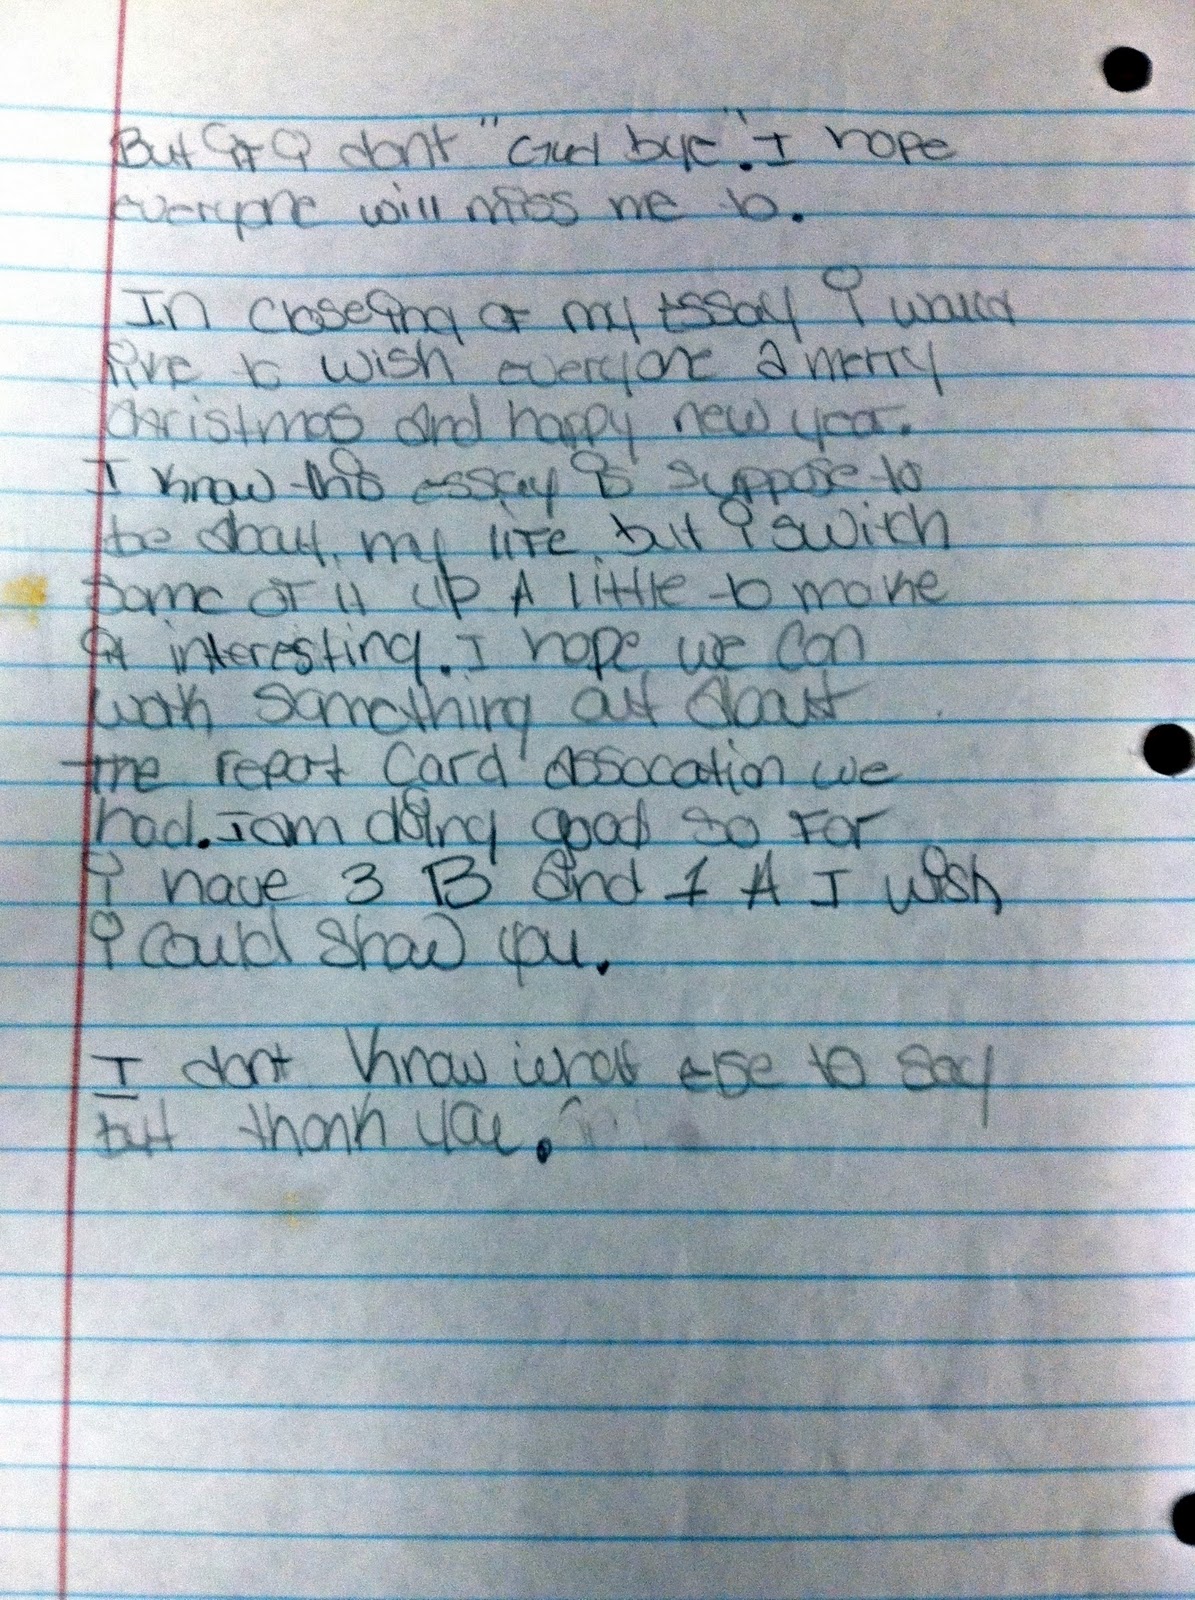 But if i dont "Gud bye". I hope
everyone will miss me to.
In closeing of my essay i would
like to wish everyone a merry
christmas and happy new year.
I know this essay is suppose to
be about my life, but i switch
some of it up A little to make
it interesting. I hope we can
work something out about
the report Card assocation we
had. I am doing good so far
i have 3 B and 1 A I wish
i could show you.
I dont know what else to say
but thank you.